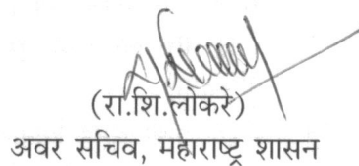 (रा.शि.लोकरे)
अवर सचिव, महाराष्ट्र शासन